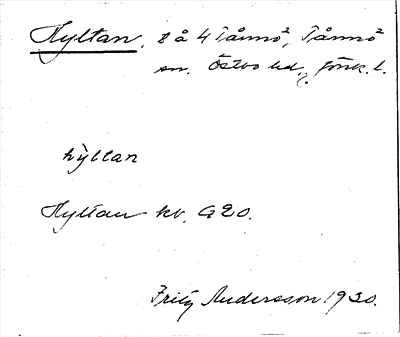 Hyltan, 2 å 4 Tånnö², Tånnö²
sn. Östbo hd., Jönk. l.
hỳltan
Hyltan kv. G20.
Fritz Andersson 1930.